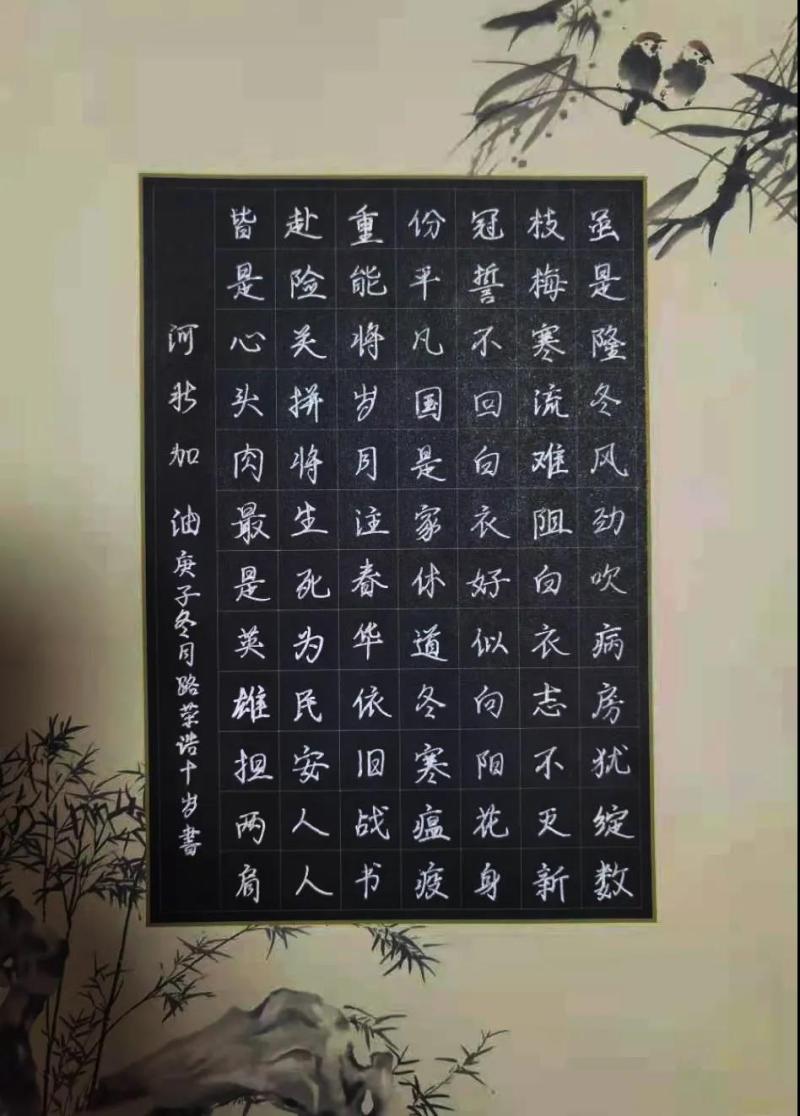 虽是隆冬风劲吹病房犹绽数
枝梅寒流难阻白衣志不灭新
冠誓不回白衣好似向阳花身
份平凡国是家休道冬寒瘟疫
重能将岁月注春华依旧战书
赴险关拼将生死为民安人人
皆是心头肉最是英雄担两肩
河北加油庚子冬月路荣浩十岁書